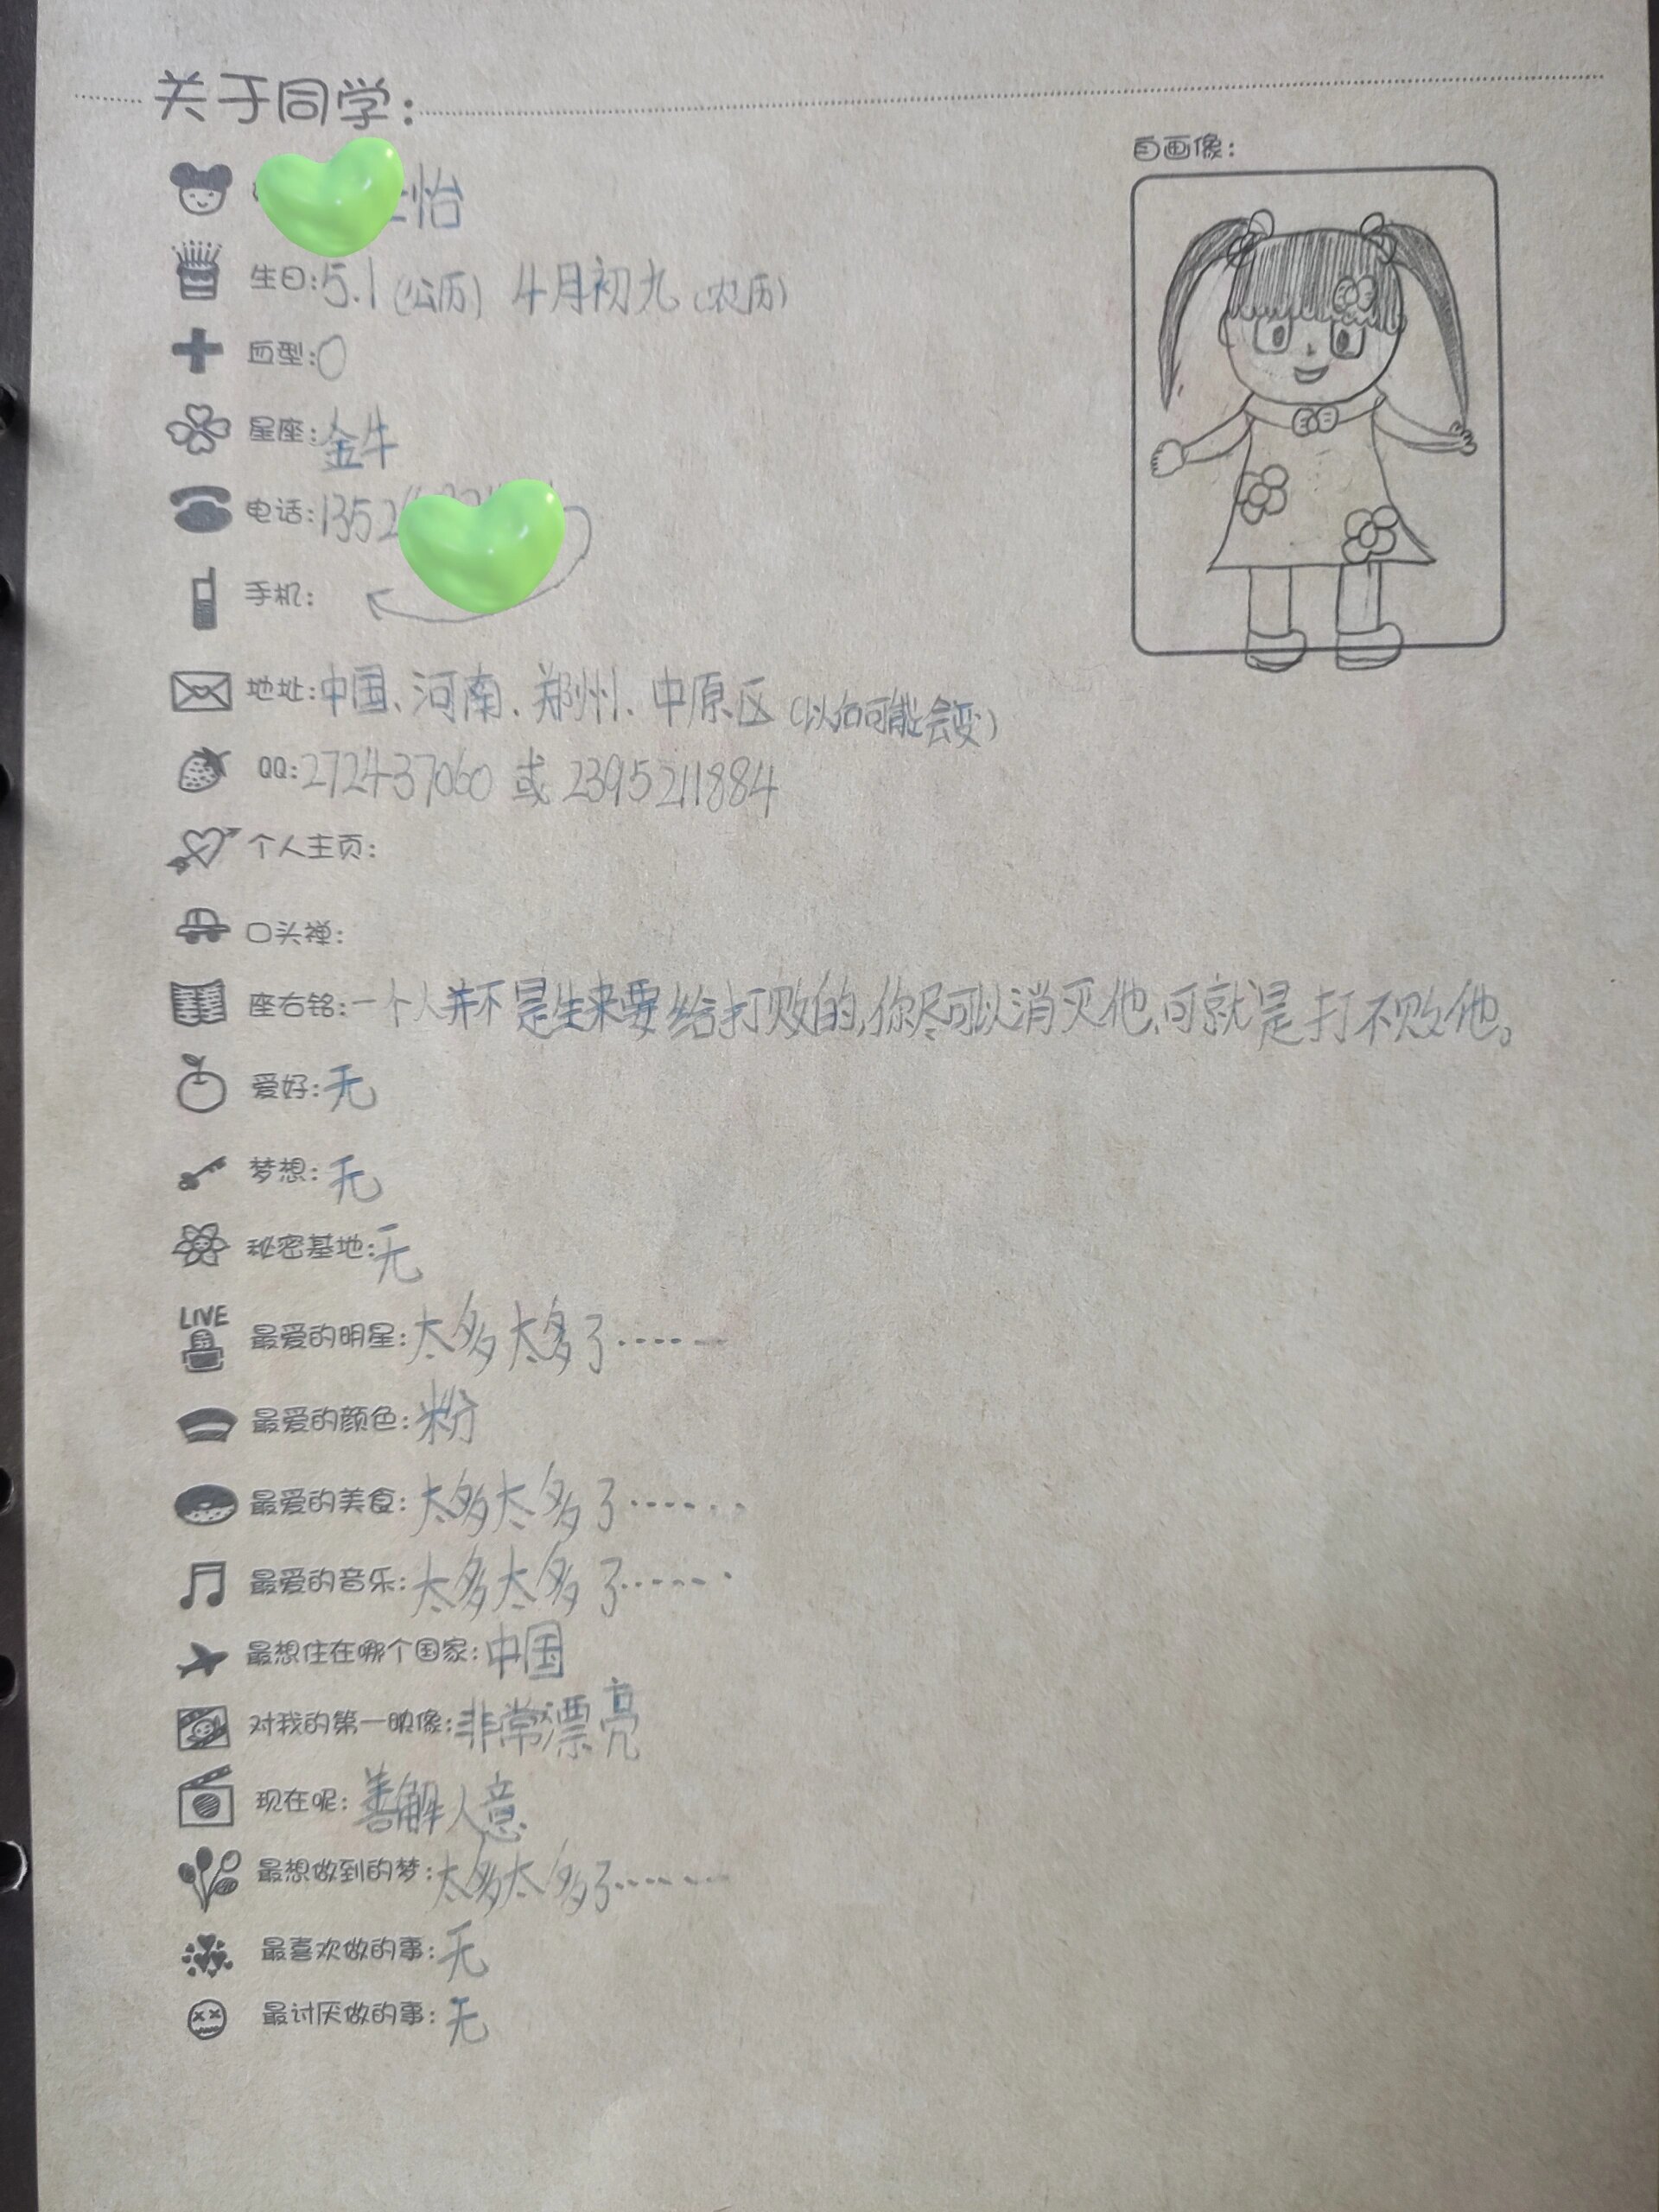 关于同学:
自画像:
怡
生日:5.1(公历) 4月初九(农历)
血型:O
星座:金牛
电话:1352
手机:
地址:中国、河南、郑州、中原区(以后可能会变)
QQ:272437060 或 2395211884
个人主页:
口头禅:
座右铭:一个人并不是生来要给打败的,你尽可以消灭他,可就是打不败他。
爱好:无
梦想:无
秘密基地:无
LIVE
最爱的明星:太多太多了……
最爱的颜色:粉
最爱的美食:太多太多了……
最爱的音乐:太多太多了……
最想住在哪个国家:中国
对我的第一映像:非常漂亮
现在呢:善解人意
最想做到的梦:太多太多了……
最喜欢做的事:无
最讨厌做的事:无